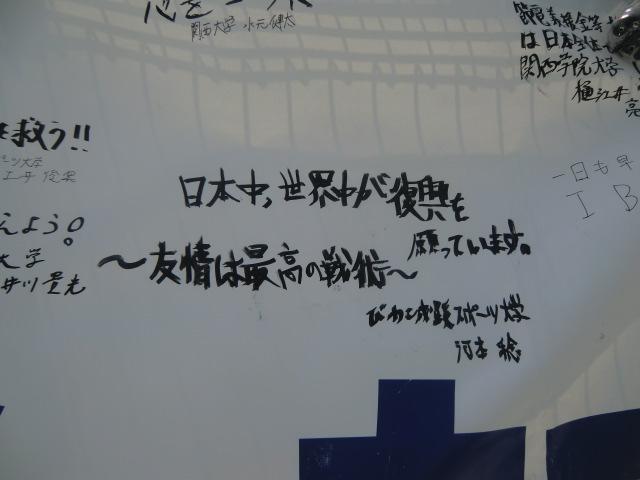 関西大学 水元 健太
は日本全体
関西学院大学
樋江井
亮
を救う!!
えよう。
大学
井川 貴光
一日も早
I B
日本中,世界中が復興を
願っています。
〜友情は最高の戦術〜
びわこ成蹊スポーツ大学
河本 稔